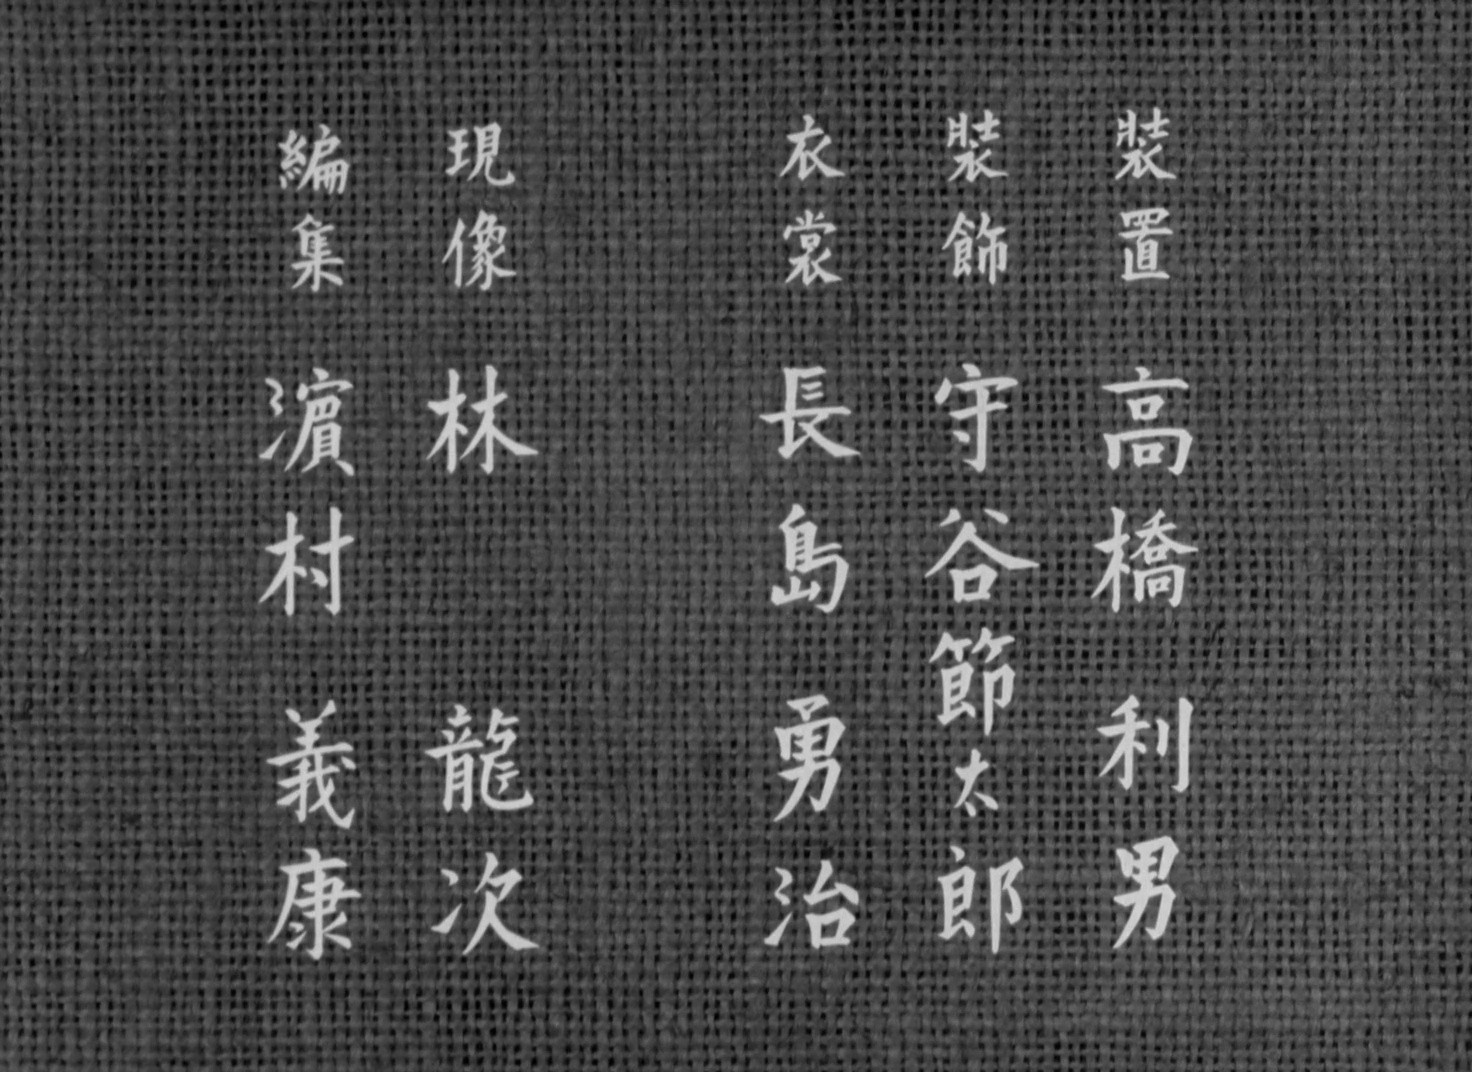 装置 高橋利男
装飾 守谷節太郎
衣裳 長島勇治
現像 林龍次
編集 濵村義康